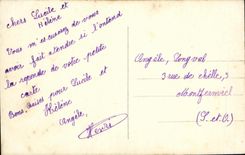 chers Lucile et
Hélène
Vous m'excusez de vous
avoir fait attendre si l'ontend
la reponde de votre petite
carte
Bons Baises pour Lucile et
Hélène
Angèle,
Angèle, Longval
3 rue de chelle, 3
Montfermeil
(S. et O.)